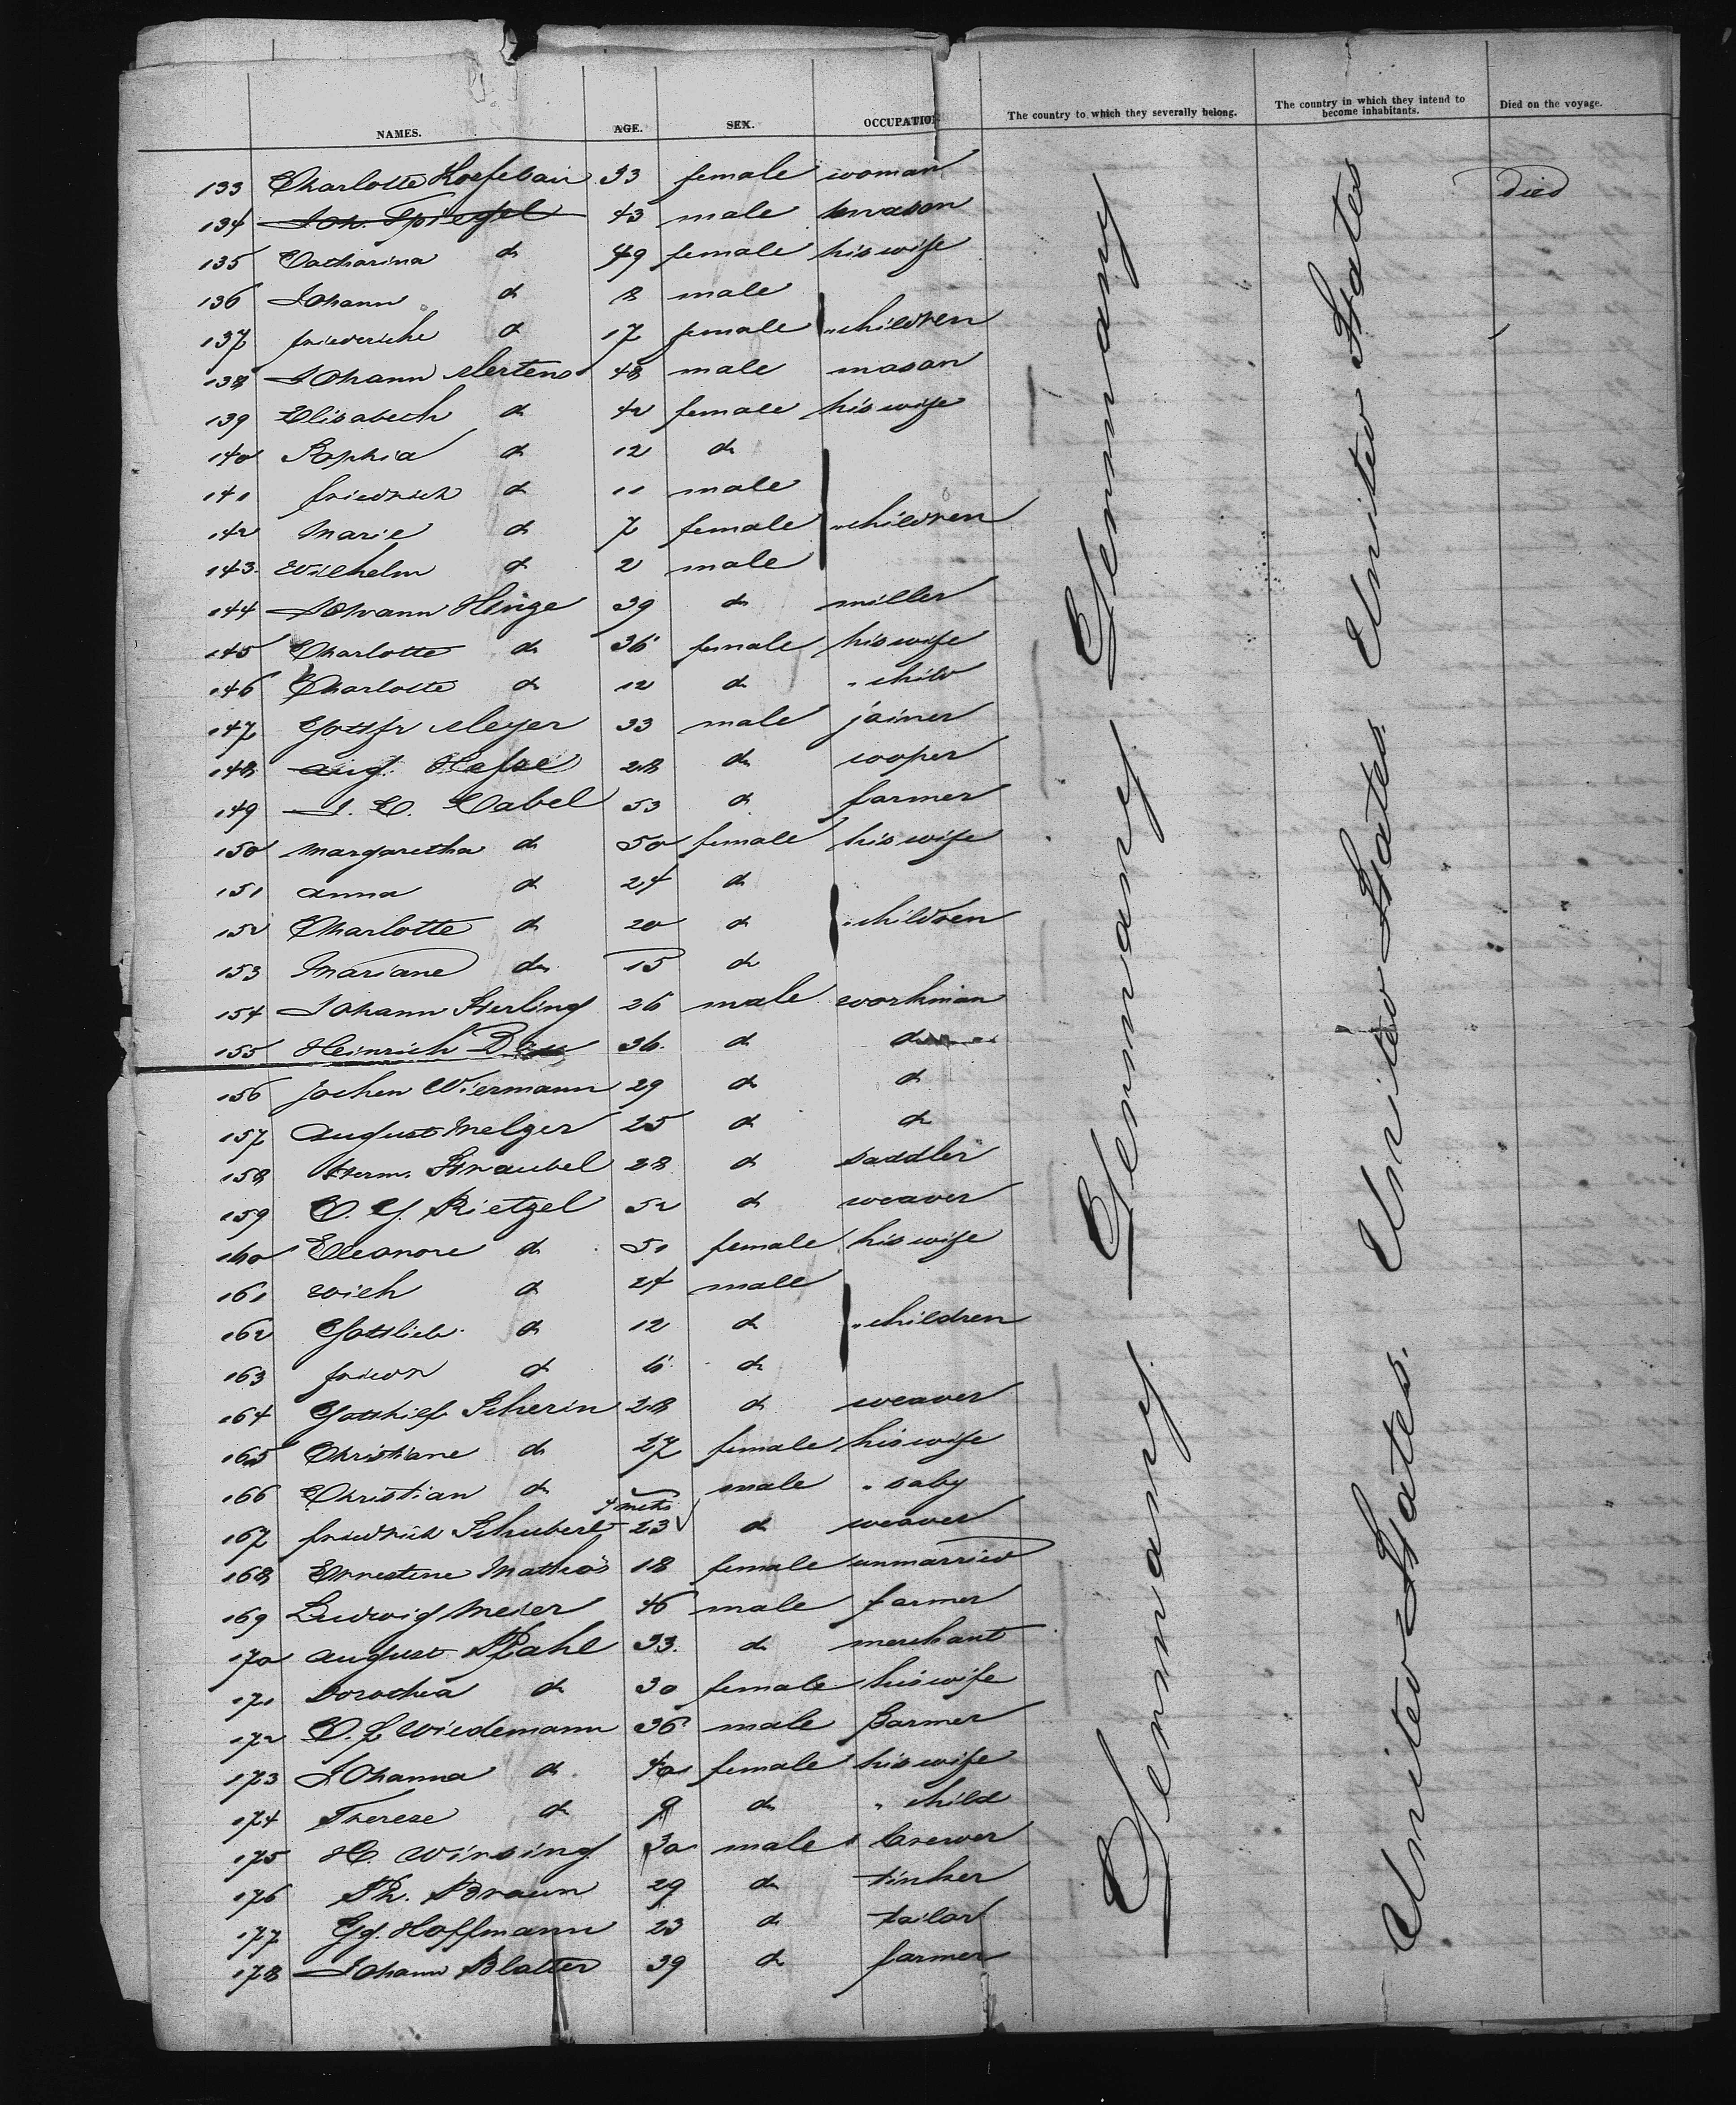 NAMES. AGE. SEX. OCCUPATION The country to which they severally belong. The country in which they intend to become inhabitants. Died on the voyage.
133 Charlotte 33 female woman
134 Joh. Spiegel 43 male mason died
135 Catharina do 49 female his wife
136 Johann do 8 male
137 friederiche do 17 female " children
138 Johann Mertens 48 male mason
139 Elisabeth do 42 female his wife
140 Sophia do 12 do
141 friedrich do 11 male
142 Marie do 7 female " children
143. Wilhelm do 2 male
144 Johann Hinge 39 do miller
145 Charlotte do 36 female his wife
146 Charlotte do 12 do " child
147 Gottfr Meyer 33 male joiner
148 Aug. Hesse 28 do cooper
149 J. C. Cabel 53 do farmer
150 Margaretha do 50 female his wife
151 Anna do 24 do
152 Charlotte do 20 do " children
153 Mariane do 15 do
154 Johann Sterling 26 male workman
155 Heinrich 36. do do
156 Jochen Wiermann 29 do do
157 August Melzer 25 do do
158 Herm. Straubel 28 do saddler
159 C. G. Rietzel 52 do weaver
160 Eleonore do 51 female his wife
161 Wilh do 24 male
162 Gottlieb do 12 do " children
163 friedr do 6 do
164 Gotthilf Scherin 28 do weaver
165 Christiane do 27 female his wife
166 Christian do 4 mths male " baby
167 friedrich Schubert 23 do weaver
168 Ernestine Matheos 18 female unmarried
169 Ludwig Meier 46 male farmer
170 August Pfahl 33. do merchant
171 Dorothea do 30 female his wife
172 C. F. Wiedemann 36 male farmer
173 Johanna do 40 female his wife
174 Therese do 9 do " child
175 H. Wirsing 30 male brewer
176 Ph. Braun 29 do tinker
177 Gg. Hoffmann 23 do tailor
178 Johann Blatter 39 do farmer
Germany Germany Germany Germany
United States. United States United States